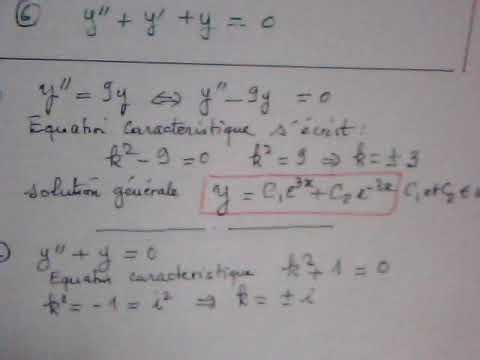 ⑥ y'' + y' + y = 0
y'' = 9y ⇔ y'' - 9y = 0
Equation caractéristique s'écrit :
k² - 9 = 0 k² = 9 ⇒ k = ± 3
solution générale y = C₁e³ˣ + C₂e⁻³ˣ C₁ et C₂ ∈
y'' + y = 0
Equation caracteristique k² + 1 = 0
k² = -1 = i² ⇒ k = ± i